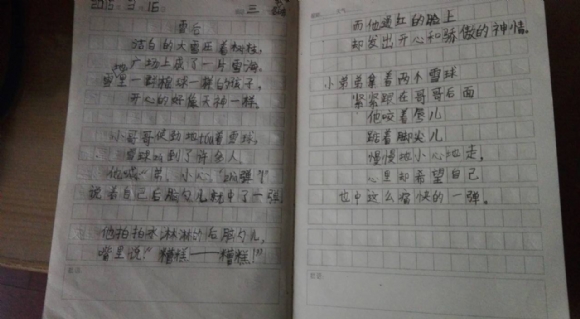 2015 3 15 三
雪后
洁白的大雪压着树枝,
广场上成了一片雪海,
雪里一群 球一样的孩子,
开心的好像天神一样。
小哥哥快地 着雪球,
雪球 到了许多人,
说着自己后脑勺儿就中了一弹
他拍拍 淋淋的后脑勺儿,
嘴里说:“糟糕——糟糕!”
而他通红的脸上
却发出开心和骄傲的神情。
小弟弟拿着两个雪球
紧紧跟在哥哥后面
他咬着唇儿
踮着脚尖儿
慢慢地小心地走,
心里却希望自己
也中这么痛快的一弹。